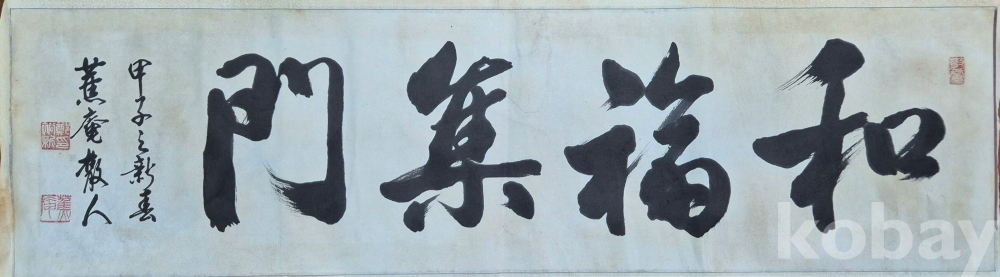 和福集門
甲子之新春
蕉庵散人
kobay